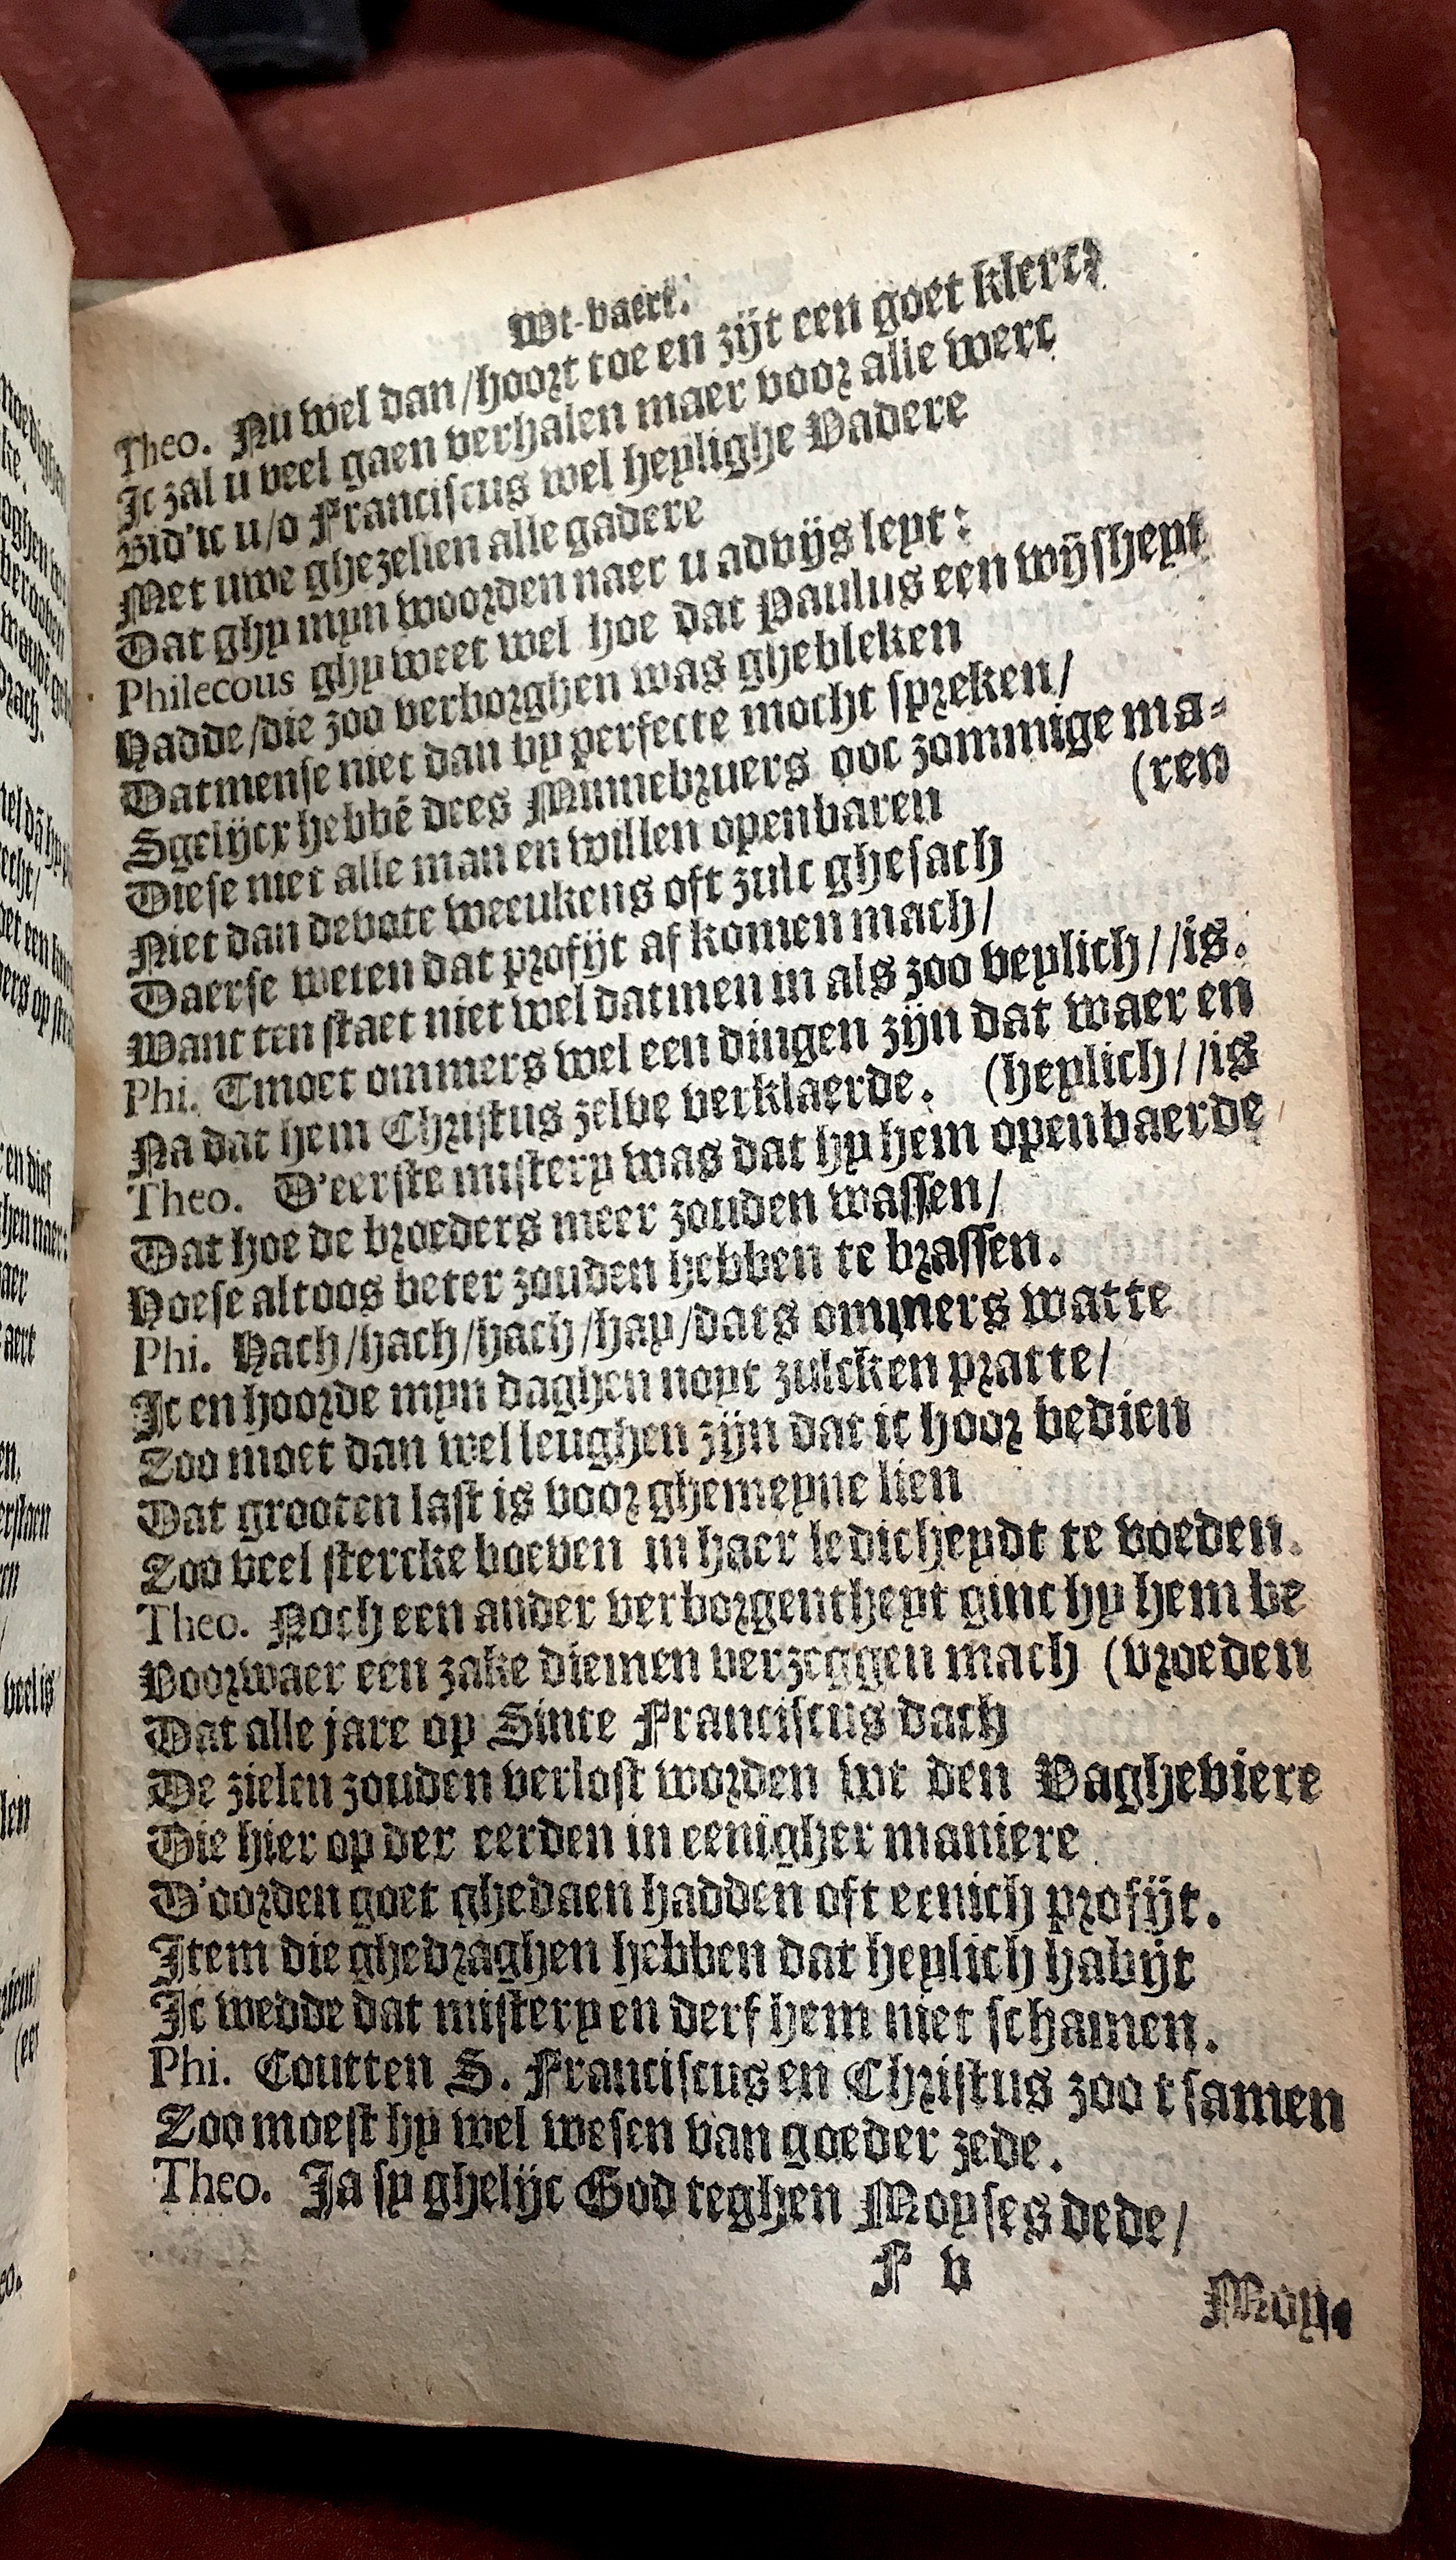 Wt-vaert.
Theo. Nu wel dan/hoort toe en zijt een goet klerc
Ic zal u veel gaen verhalen maer voor alle werc
Bid'ic u/o Franciscus wel heylighe Vadere
Met uwe ghezellen alle gadere
Dat ghy myn woorden naer u advijs leyt:
Philecous ghy weet wel hoe dat Paulus een wijsheyt
Hadde/die zoo verborghen was ghebleken
Datmense niet dan by perfecte mocht spreken/
Sgelijcx hebbē dees Minnebruers ooc zommige ma-
(ren
Diese niet alle man en willen openbaren
Niet dan devote weeukens oft zulc ghesach
Daerse weten dat profijt af komen mach/
Want ten staet niet wel datmen in als zoo veylich//is.
Phi. Tmoet ommers wel een dingen zijn dat waer en
(heylich//is
Na dat hem Christus zelve verklaerde.
Theo. D'eerste mistery was dat hy hem openbaerde
Dat hoe de broeders meer zouden wassen/
Hoese altoos beter zouden hebben te brassen.
Phi. Hach/hach/hach/hay/dats ommers watte
Ic en hoorde myn daghen noyt zulcken pratte/
Zoo moet dan wel leughen zijn dat ic hoor bedien
Dat grooten last is voor ghemeyne lien
Zoo veel stercke boeven in haer ledicheydt te voeden.
Theo. Noch een ander verborgentheyt ginc hy hem be
(vroeden
Voorwaer een zake diemen verzeggen mach
Dat alle jare op Sinte Franciscus dach
De zielen zouden verlost worden wt den Vagheviere
Die hier op der eerden in eenigher maniere
D'oorden goet ghedaen hadden oft eenich profijt.
Item die ghedraghen hebben dat heylich habijt
Ic wedde dat mistery en derf hem niet schamen.
Phi. Coutten S. Franciscus en Christus zoo tsamen
Zoo moest hy wel wesen van goeder zede.
Theo. Ja sy ghelijc God teghen Moyses dede/
F v
Moy.